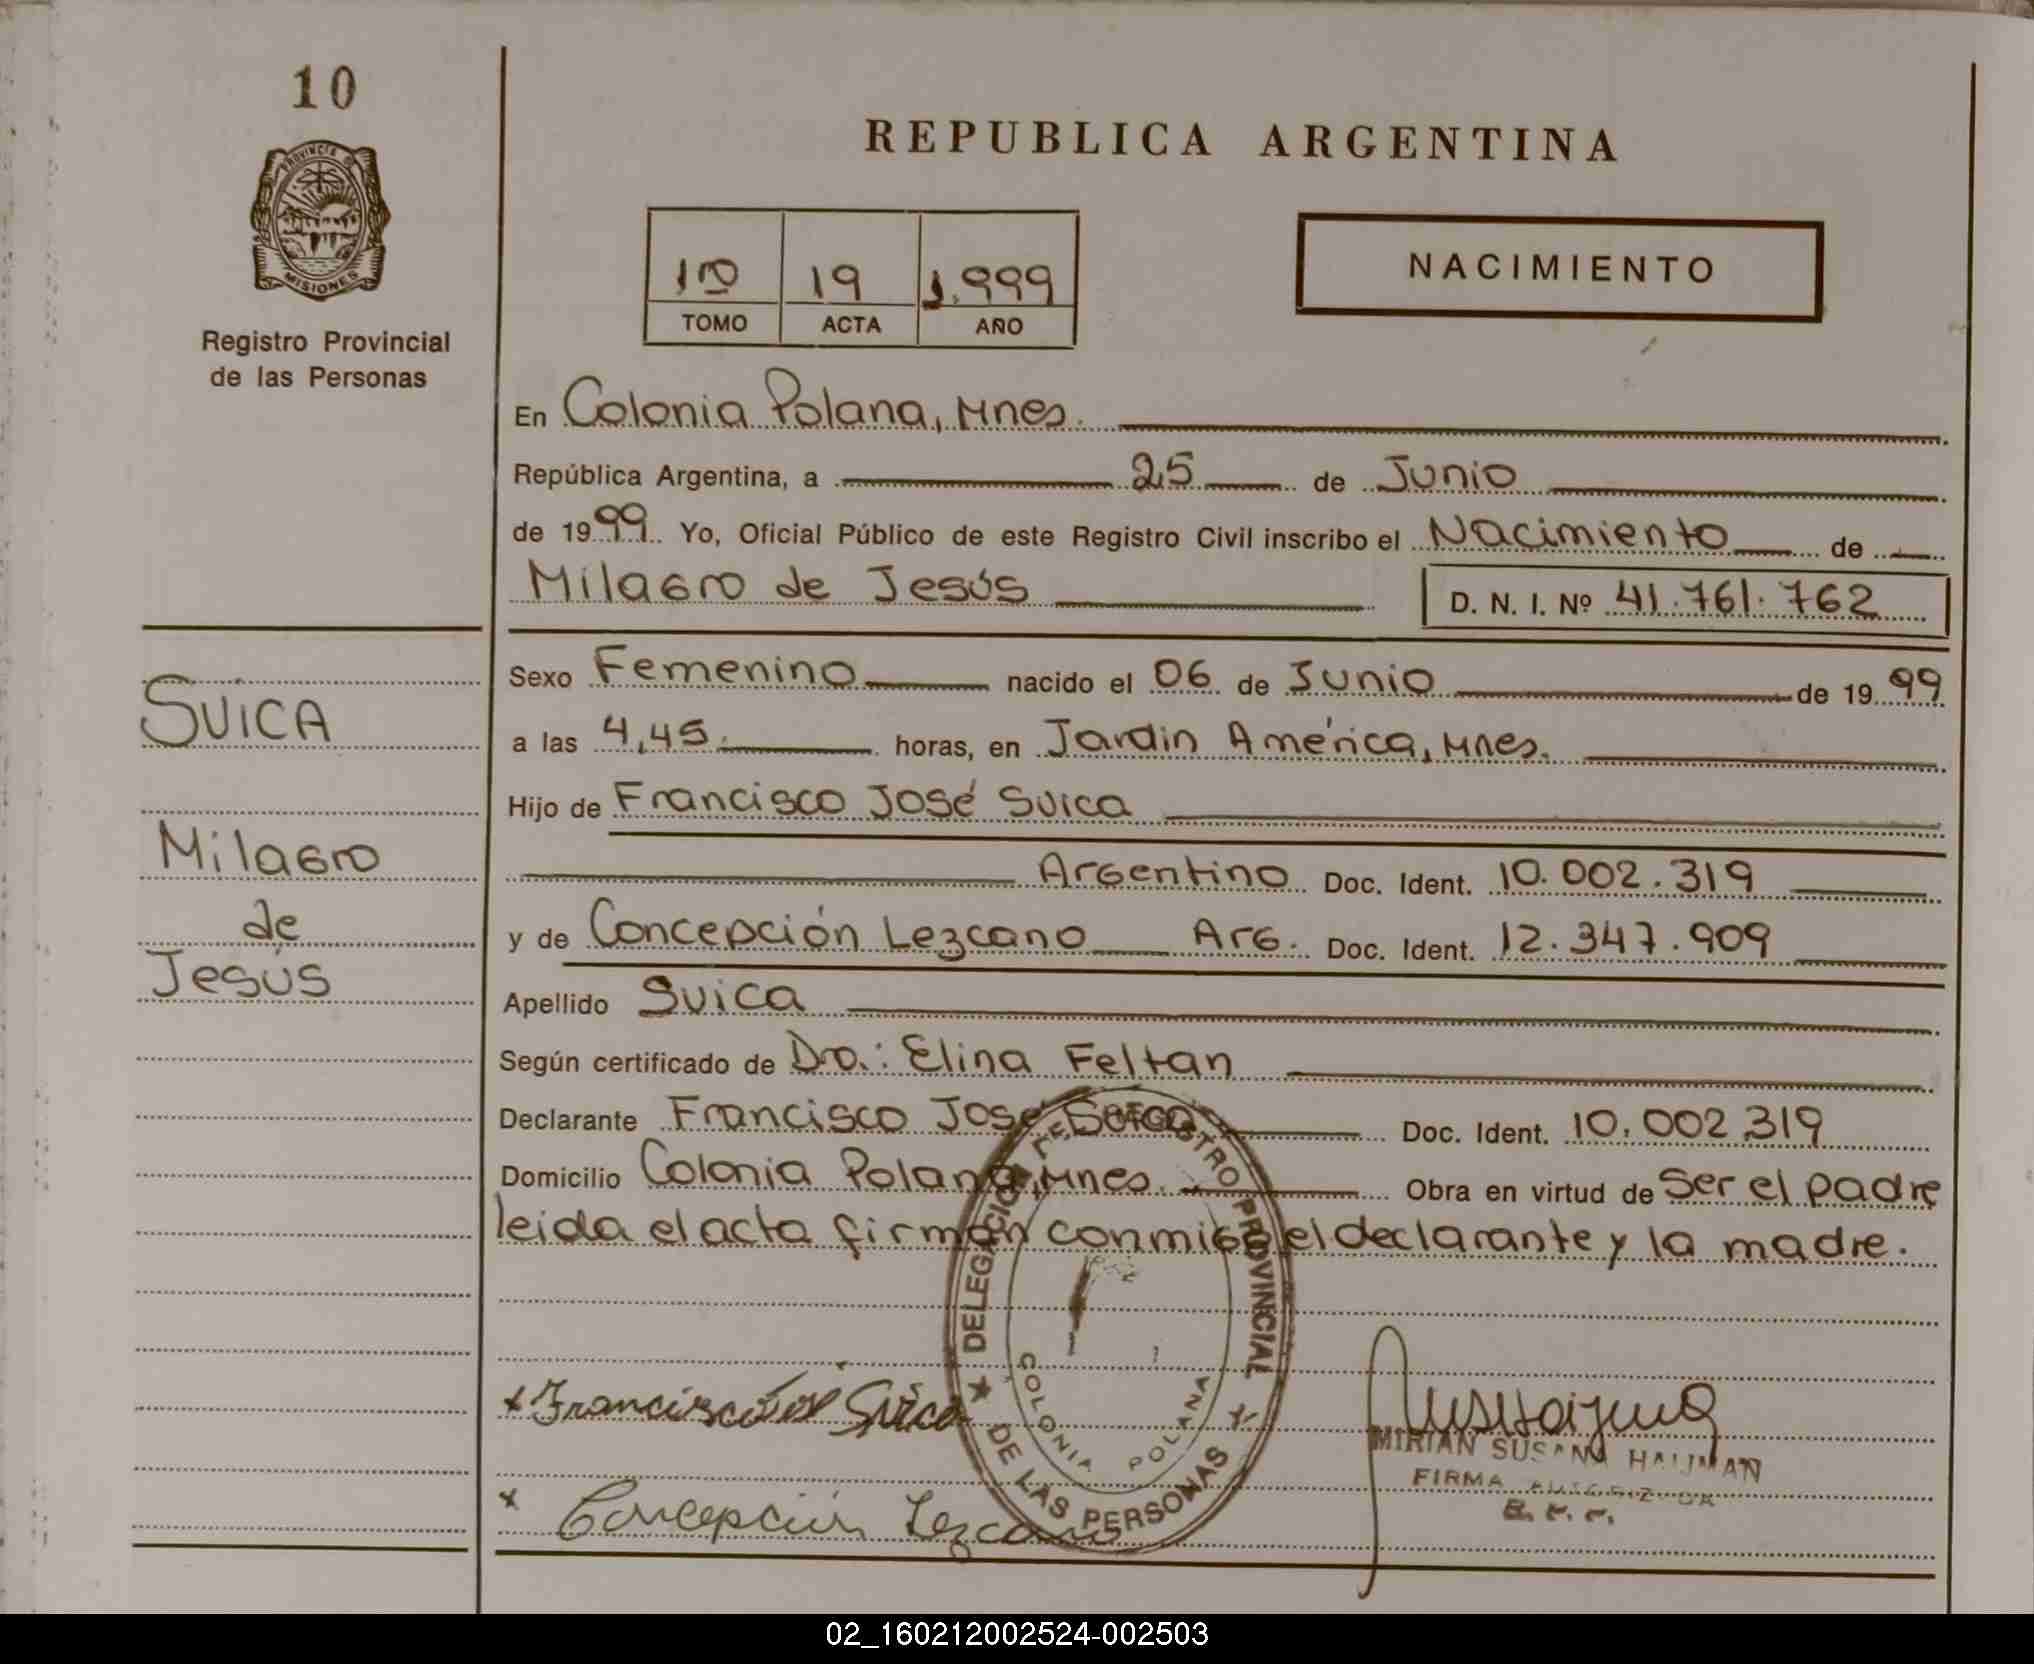 10
PROVINCIA DE
MISIONES
Registro Provincial
de las Personas
REPUBLICA ARGENTINA
1º 19 1.999
TOMO ACTA AÑO
NACIMIENTO
En Colonia Polana, Mnes.
República Argentina, a 25 de Junio
de 1999. Yo, Oficial Público de este Registro Civil inscribo el Nacimiento de
Milagro de Jesús D. N. I. Nº 41.761.762
Sexo Femenino nacido el 06 de Junio de 1999
a las 4,45. horas, en Jardin América, Mnes.
Hijo de Francisco José Suica
Argentino Doc. Ident. 10.002.319
y de Concepción Lezcano Arg. Doc. Ident. 12.347.909
Apellido Suica
Según certificado de Dra.: Elina Feltan
Declarante Francisco José Suica Doc. Ident. 10.002.319
Domicilio Colonia Polana, Mnes. Obra en virtud de Ser el padre
leida el acta firman conmigo el declarante y la madre.
SUICA
Milagro
de
Jesús
DELEGACION DEL REGISTRO PROVINCIAL
DE LAS PERSONAS
COLONIA POLANA
x Francisco José Suica
x Concepción Lezcano
MIRIAN SUSANA HAUMAN
FIRMA AUTORIZADA
02_160212002524-002503